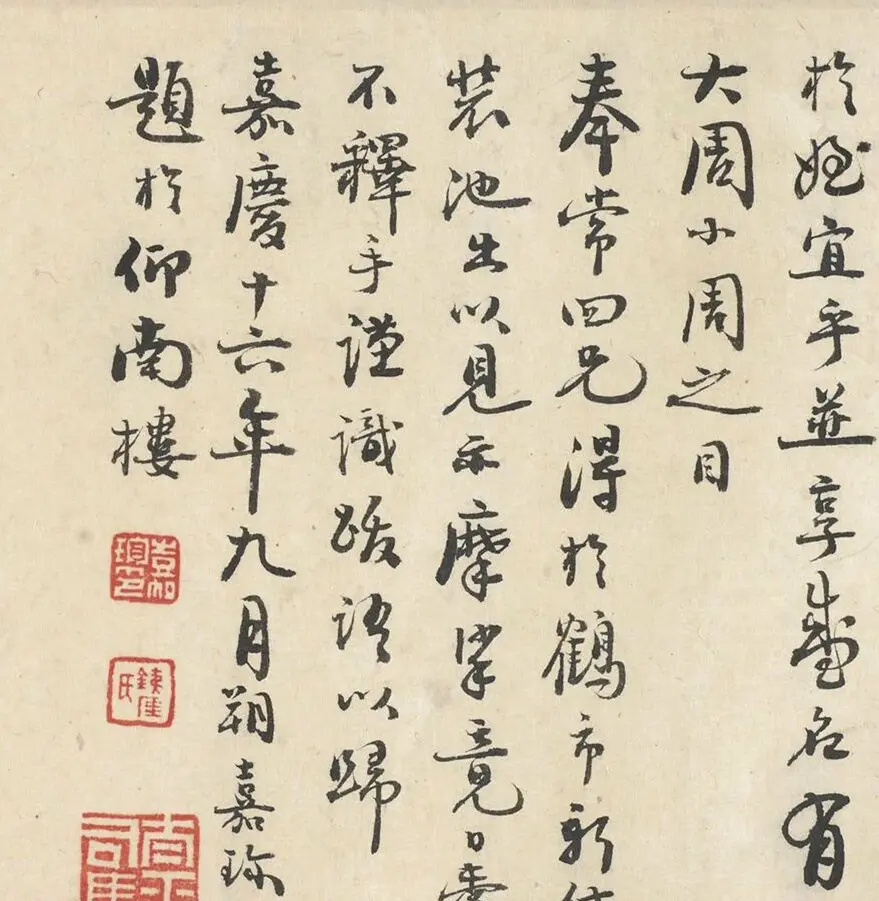 於姪宜乎並享盛名有
大周小周之目
奉常四兄得於鶴市新
裝池出以見示摩挲竟日
不釋手謹識跋語以歸
嘉慶十六年九月朔嘉珎
題於仰南樓